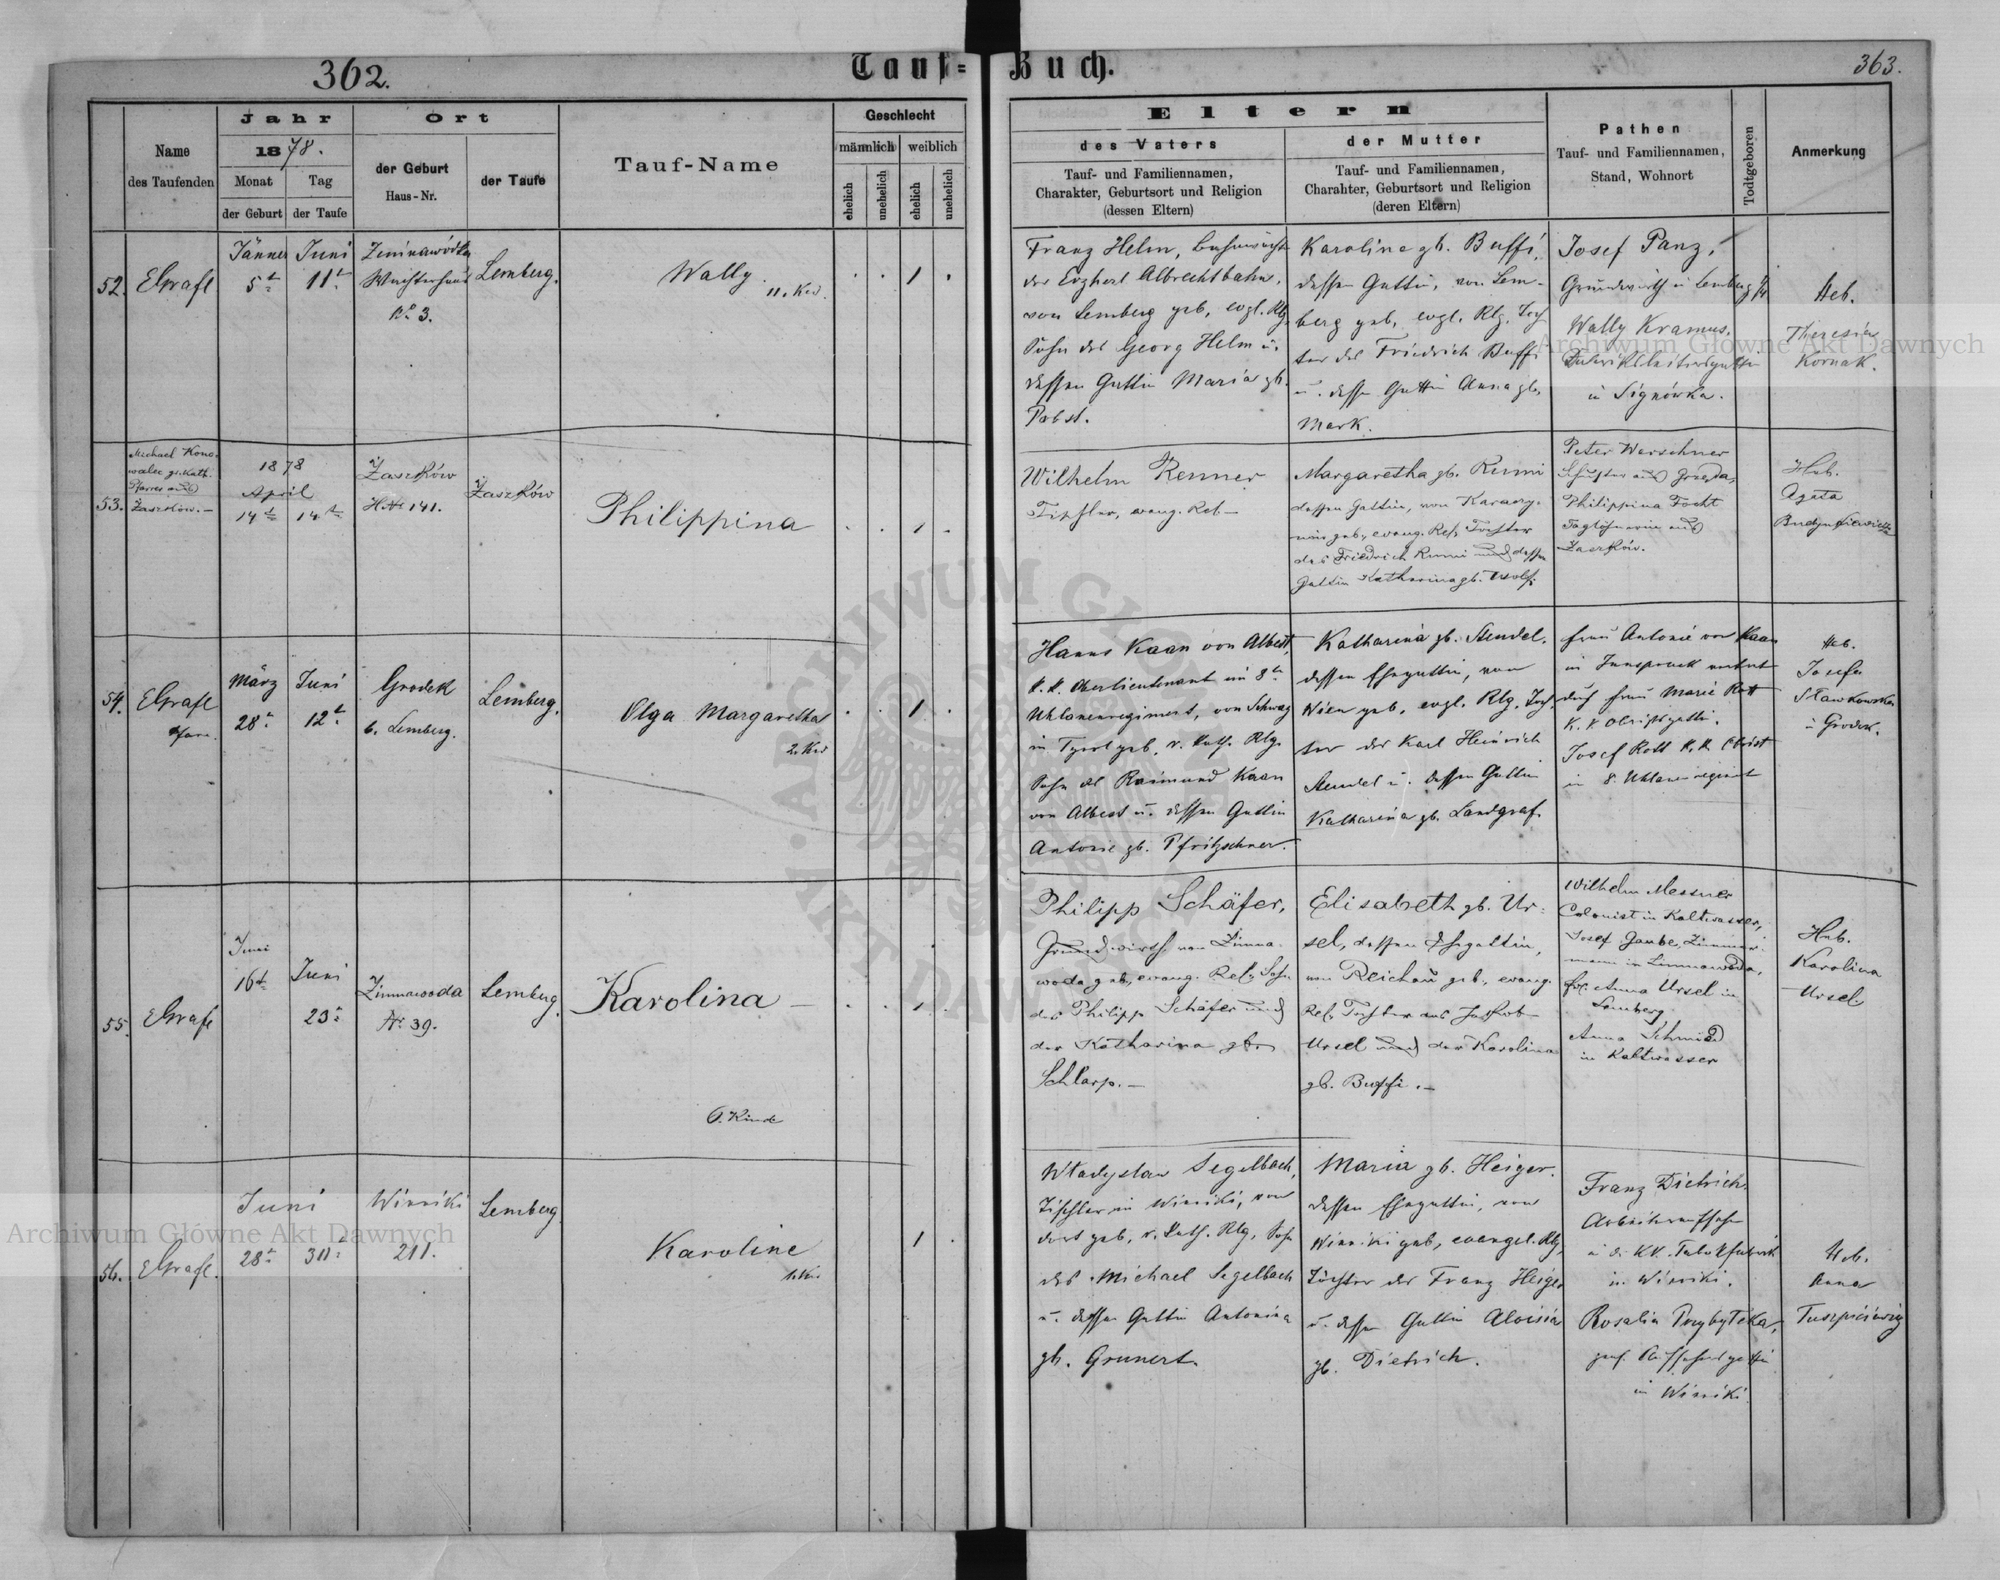 362.
Tauf=Buch.
363.
Name
des Taufenden
Jahr
1878.
Monat
der Geburt
Tag
der Taufe
Ort
der Geburt
Haus-Nr.
der Taufe
Tauf-Name
Geschlecht
männlich
weiblich
ehelich
unehelich
ehelich
unehelich
Eltern
des Vaters
Tauf- und Familiennamen,
Charakter, Geburtsort und Religion
(dessen Eltern)
der Mutter
Tauf- und Familiennamen,
Charahter, Geburtsort und Religion
(deren Eltern)
Pathen
Tauf- und Familiennamen,
Stand, Wohnort
Todtgeboren
Anmerkung
52.
EGrafl
Jänner
5t
Juni
11t
Zminawódka
Wächterhaus
No 3.
Lemberg.
Wally
11. Kid.
1
Franz Helm,
der Erzherz Albrechtbahn,
von Lemberg geb, evgl. Rlg.
Sohn des Georg Helm u.
dessen Gattin Maria gb.
Pabst.
Karolina gb. Buffi,
dessen Gattin, von Lem-
berg geb, evgl. Rlg. Toch
ter des Friedrich Buffi
u. desse Gattin Anna gb.
Mark.
Josef Panz,
Grundwirth in Lemberg
Wally Kramus.
in Signówka.
Heb.
Theresia
Kornak.
53.
Michael Kono-
walec gr. Kath.
Pfarrer aus
Zaszków.-
1878
April
14t
14t
Zaszków
HNr 141.
Zaszków
Philippina
1
Wilhelm Renner
Tischler, evang. Rel.-
Margaretha gb. Rumi
dessen Gattin, von
geb, evang. Rel. Tochter
des Friedrich Rumi und dessen
Gattin Katharina gb. Wolf.
Peter Warschner
Schuster aus Grzęda,
Philippina Focht
Taglöhnerin aus
Zaszków.
Heb.
Agata
54.
EGrafl
Pfarr.
März
28t
Juni
12t
Grodek
b. Lemberg.
Lemberg.
Olga Margaretha
2. Kid
1
Hanns Kaan von Albest,
k. k. Oberlieutenant im 8t
Uhlanenregiment, von Schwaz
in Tyrol geb, r. kath. Rlg.
Sohn des Raimund Kaan
von Albest u. dessen Gattin
Antonie gb. Pfritzschner.
Katharina gb. Stendel.
dessen Ehegattin, von
Wien geb, evgl. Rlg. Toch
ter des Karl Heinrich
Stendel u. dessen Gattin
Katharina gb. Landgraf.
Frau Antonie von Kaan
in Innspruck
durch Frau Marie Rott
K. K Obristgattin.
Josef Rott K. K. Obrist
in 8. Uhlanenregiment
Heb.
Josefa
Sławkowska
in Grodek.
55.
EGrafl
Juni
16t
Juni
23t
Zimnawoda
Nr 39.
Lemberg.
Karolina -
6. Kind
1
Philipp Schäfer,
Grundwirth von Zimna-
woda geb, evang. Rel. Sohn
des Philipp Schäfer und
der Katharina gb.
Schlarp.-
Elisabeth gb. Ur-
sel, dessen Ehegattin,
von Reichau geb, evang.
Rel. Tochter des Jakob
Ursel und der Karolina
gb. Buffi.-
Wilhelm Messner
Colonist in Kaltwasser,
Josef Gaube, Zimmer-
mann in Zimnawoda,
Anna Ursel in
Lemberg
Anna Schmid
in Kaltwasser
Heb.
Karolina
Ursel
56.
EGrafl.
Juni
28t
30t
Winniki
211.
Lemberg.
Karoline
1. Kid
1
Władysław Segelbach,
Tischler in Winniki, von
dort geb, r. kath. Rlg, Sohn
des Michael Segelbach
u. dessen Gattin Antonina
gb. Grunert.
Maria gb. Heiger.
dessen Ehegattin, von
Winniki geb, evangel. Rlg.
Tochter des Franz Heiger
u. dessen Gattin Aloisia
gb. Dietrich.
Franz Dietrich,
Arbeiteraufseher
in d. KK. Tabakfabrik
in Winniki.
Rosalia Przybyłska,
in Winniki
Heb.
Anna
Archiwum Główne Akt Dawnych
Archiwum Główne Akt Dawnych
ARCHIWUM GŁÓWNE
AKT DAWNYCH